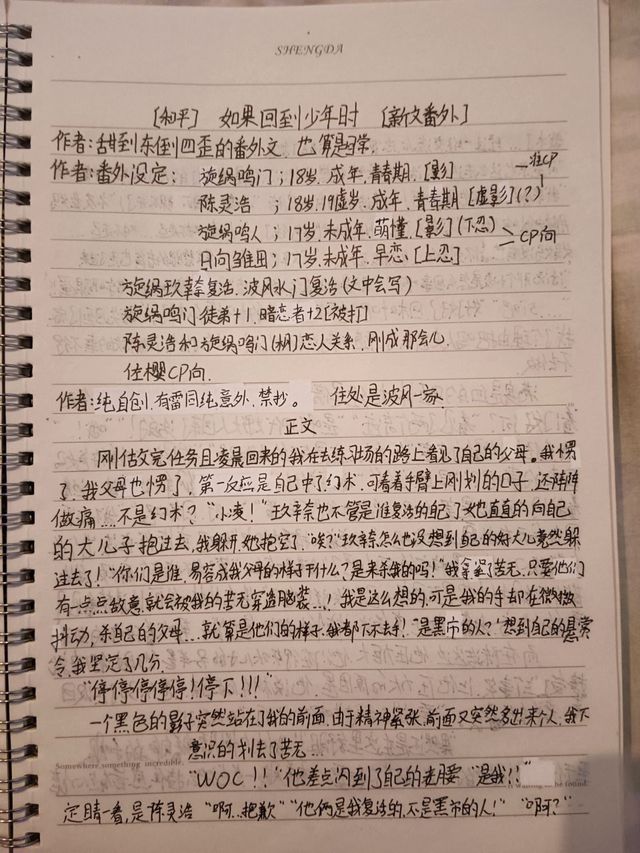 SHENGDA
[和平] 如果回到少年时 [新文番外]
作者:甜到东倒四歪的番外文,也算是日常,
作者:番外设定: 旋涡鸣门;18岁,成年,青春期,[影] —准CP
陈灵浩 ;18岁,19虚岁,成年,青春期[虚影](?)
旋涡鸣人;17岁,未成年,萌懂,[影](下忍) >CP向
日向雏田;17岁,未成年,早恋[上忍]
旋涡玖辛奈复活,波风水门复活(文中会写)
旋涡鸣门徒弟+1,暗恋者+2[被打]
陈灵浩和旋涡鸣门()恋人关系,刚成那会儿
佐樱CP向.
作者:纯自创,有雷同纯意外,禁抄。 住处是波风一家.
正文
刚估文完任务且凌晨回来的我在去练习场的路上看见了自己的父母。我愣
了,我父母也愣了,第一反应是自己中了幻术,可看着手臂上刚划的口子,还阵阵
做痛...不是幻术?"小凌!"玖辛奈也不管是谁复活的自己了她直直的向自己
的大儿子抱过去,我躲开,她抱空了."唉?"玖辛奈怎么也没想到自己的好大儿竟然躲
过去了!"你们是谁,易容成我父母的样子干什么?是来杀我的吗!"我拿紧了苦无,只要他们
有一点点敌意,就会被我的苦无穿透脑袋...!我是这么想的,可是我的手却在微微
抖动,杀自己的父母...就算是他们的样子,我都下不去手!"是黑市的人?"想到自己的悬赏
令,我坚定了几分.
"停停停停停!停下!!!"
一个黑色的影子突然站在了我的前面,由于精神紧张,前面又突然多出来个人,我下
意识的划去了苦无...
Somewhere, something incredible
"WOC!!"他差点闪到了自己的老腰 "是我!!"
be found.
定睛一看,是陈灵浩 "啊...抱歉""他俩是我复活的,不是黑市的人!" "啊?"